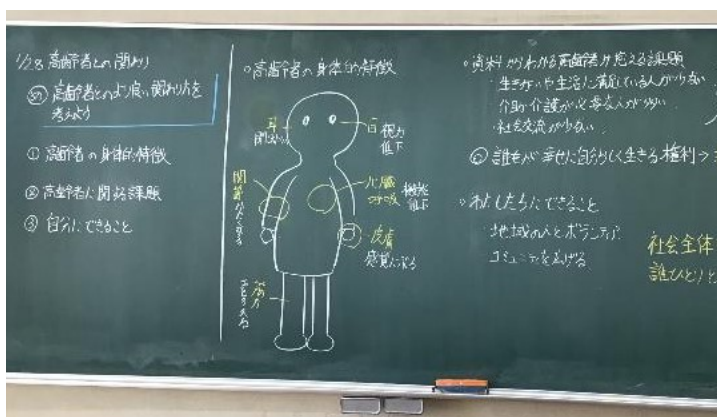 1/28 高齢者との関わり
め 高齢者とのより良い関わり方を
考えよう
① 高齢者の身体的特徴
② 高齢者に関する課題
③ 自分にできること
○高齢者の身体的特徴
耳
目 視力
低下
関節
かたくなる
心臓
呼吸 機能
低下
皮膚
感覚にぶる
筋力
おとろえる
○資料からわかる高齢者が抱える課題
・生きがいや生活に満足している人が少ない
・介助や介護が必要な人が多い
・社会交流が少ない
◎誰もが幸せに自分らしく生きる権利→
○私たちにできること
・地域の人とボランティア
コミュニティを広げる
社会全体
誰ひとりと